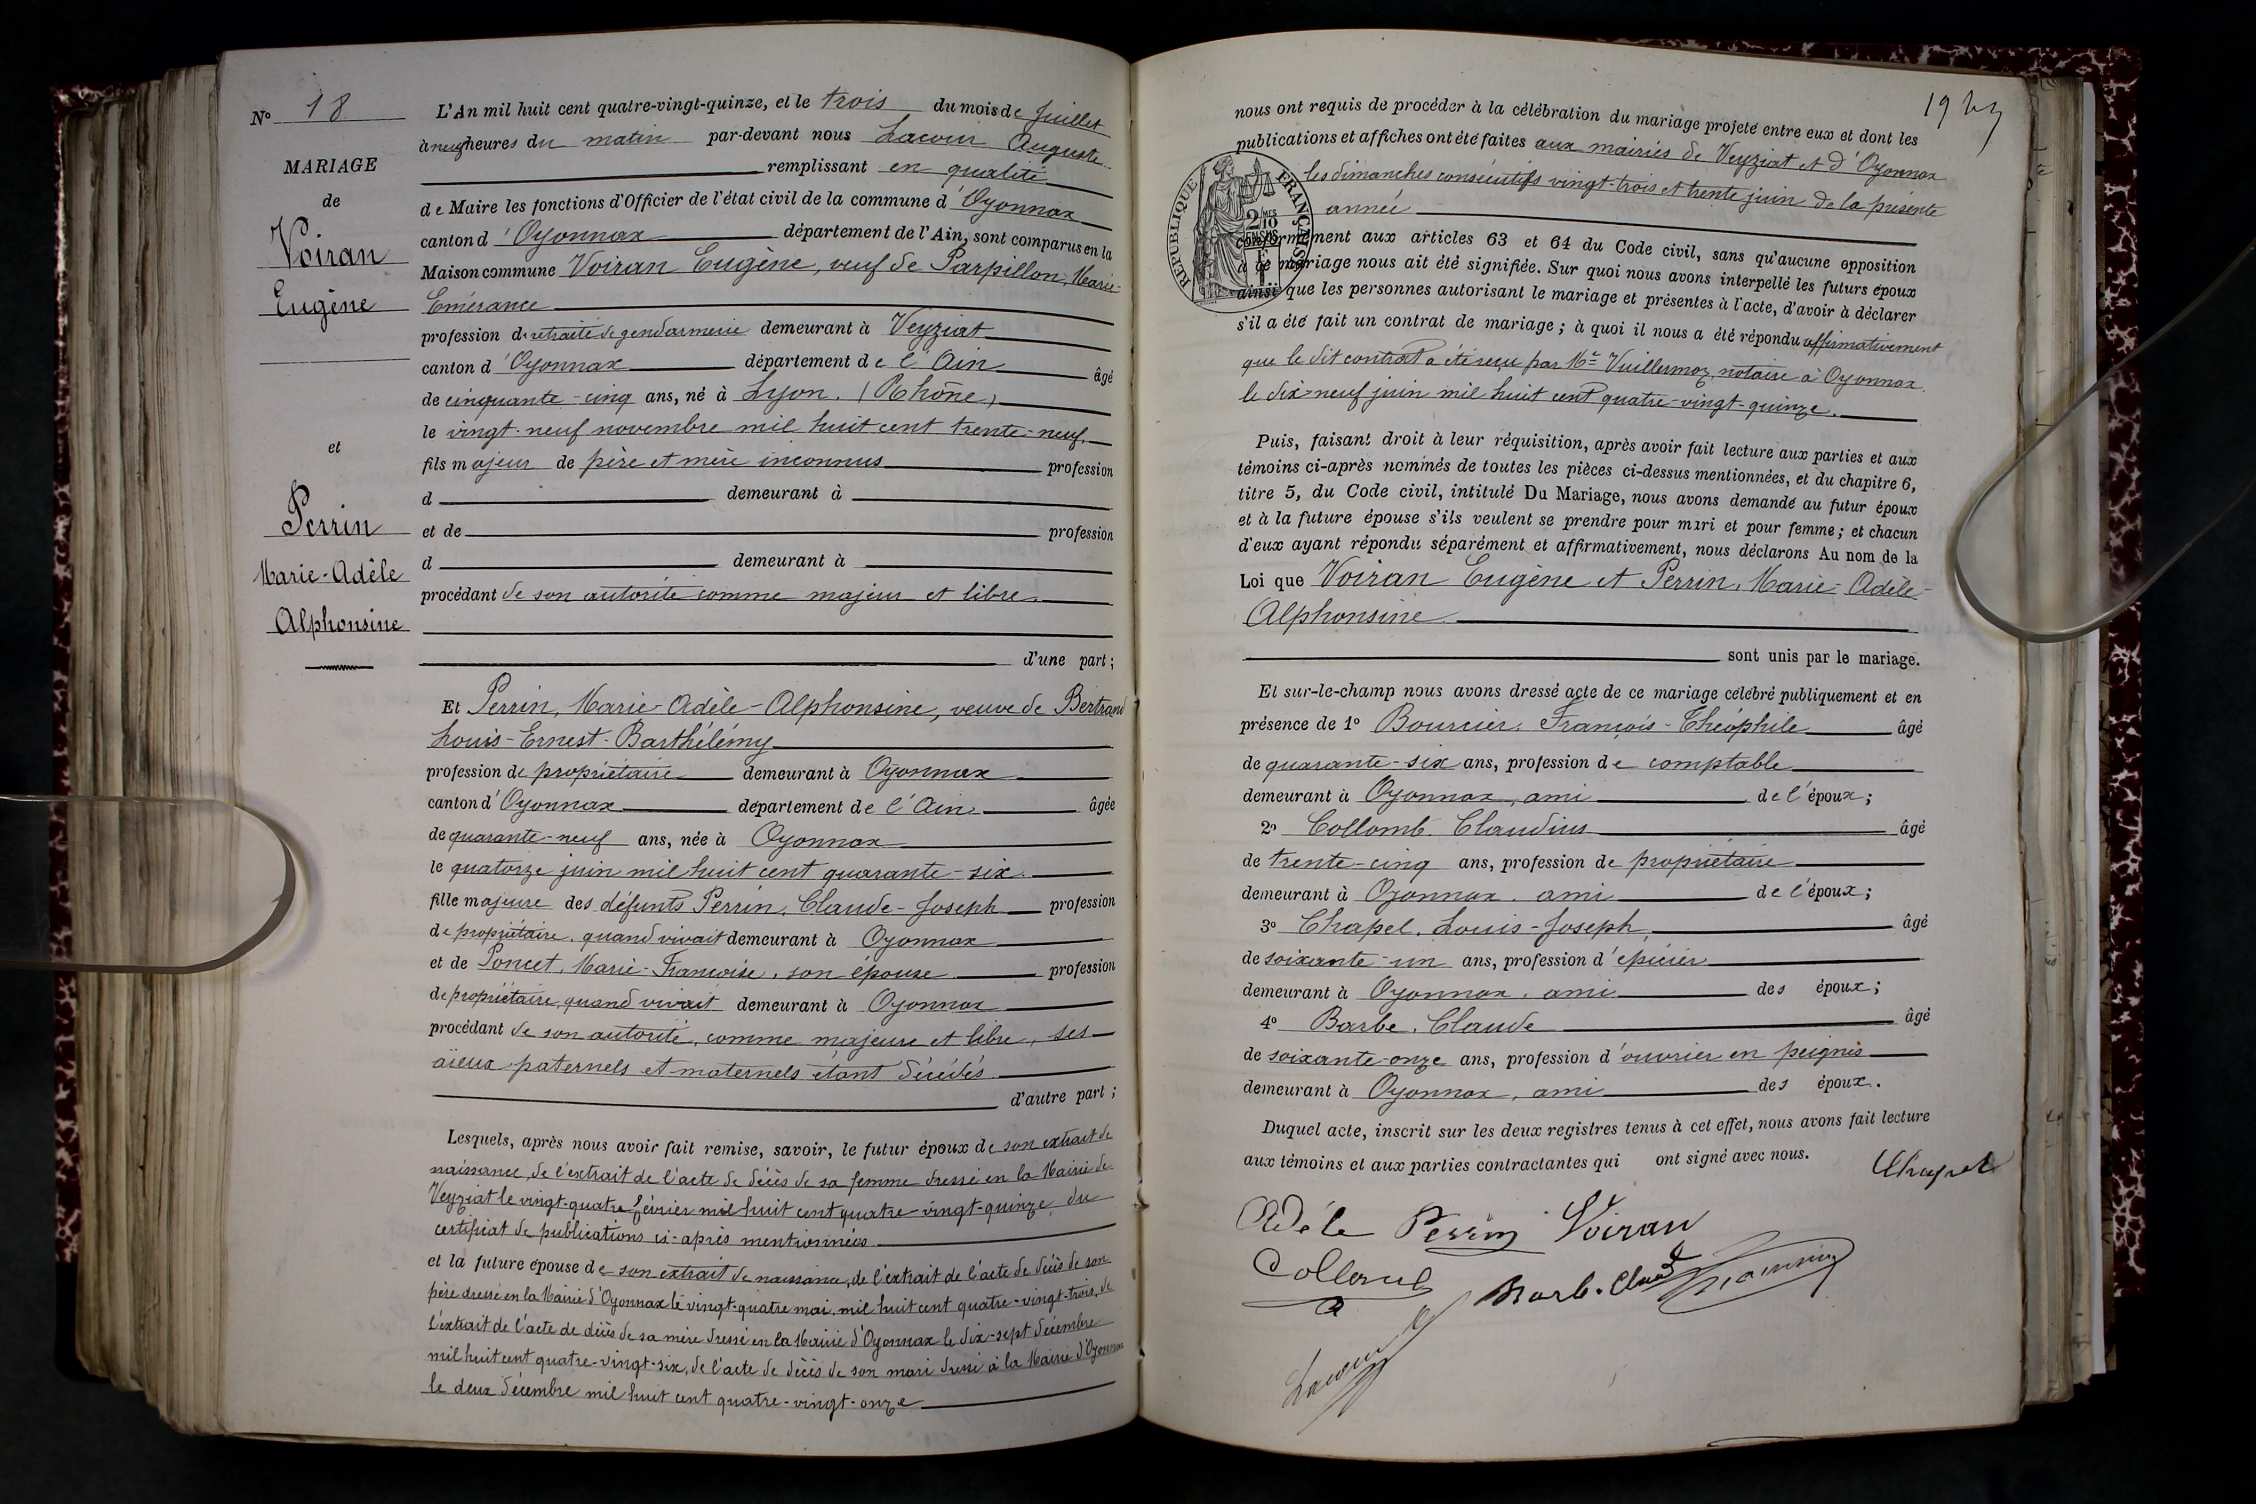 N° 18
MARIAGE
de
Voiran
Eugène
et
Perrin
Marie-Adèle
Alphonsine
L'An mil huit cent quatre-vingt-quinze, et le trois du mois de Juillet
à neuf heures du matin par-devant nous Lacour Auguste
remplissant en qualité
de Maire les fonctions d'Officier de l'état civil de la commune d'Oyonnax
canton d'Oyonnax département de l'Ain, sont comparus en la
Maison commune Voiran Eugène, veuf de Parpillon, Marie-
Emérance
profession de retraité de gendarmerie demeurant à Veyziat
canton d'Oyonnax département de l'Ain âgé
de cinquante-cinq ans, né à Lyon. (Rhône)
le vingt-neuf novembre mil huit cent trente-neuf.
fils majeur de père et mère inconnus profession
d demeurant à
et de profession
d demeurant à
procédant de son autorité comme majeur et libre.
d'une part;
Et Perrin, Marie-Adèle-Alphonsine, veuve de Bertrand
Louis-Ernest-Barthélémy
profession de propriétaire demeurant à Oyonnax
canton d'Oyonnax département de l'Ain âgée
de quarante-neuf ans, née à Oyonnax
le quatorze juin mil huit cent quarante-six.
fille majeure des défunts Perrin, Claude-Joseph profession
de propriétaire, quand vivait demeurant à Oyonnax
et de Poncet, Marie-Françoise, son épouse profession
de propriétaire, quand vivait demeurant à Oyonnax
procédant de son autorité, comme majeure et libre, ses
aïeux paternels et maternels étant décédés.
d'autre part;
Lesquels, après nous avoir fait remise, savoir, le futur époux de son extrait de
naissance, de l'extrait de l'acte de décès de sa femme dressé en la Mairie de
Veyziat le vingt-quatre février mil huit cent quatre-vingt-quinze, du
certificat de publications ci-après mentionnées
et la future épouse de son extrait de naissance, de l'extrait de l'acte de décès de son
père dressé en la Mairie d'Oyonnax le vingt-quatre mai, mil huit cent quatre-vingt-trois, de
l'extrait de l'acte de décès de sa mère dressé en la Mairie d'Oyonnax le dix-sept décembre
mil huit cent quatre-vingt-six, de l'acte de décès de son mari dressé à la Mairie d'Oyonnax
le deux décembre mil huit cent quatre-vingt-onze
nous ont requis de procéder à la célébration du mariage projeté entre eux et dont les
publications et affiches ont été faites aux mairies de Veyziat et d'Oyonnax
les dimanches consécutifs vingt-trois et trente juin de la présente
année
REPUBLIQUE FRANÇAISE
2/10 MES EN SUS
1F
conformément aux articles 63 et 64 du Code civil, sans qu'aucune opposition
à ce mariage nous ait été signifiée. Sur quoi nous avons interpellé les futurs époux
ainsi que les personnes autorisant le mariage et présentes à l'acte, d'avoir à déclarer
s'il a été fait un contrat de mariage; à quoi il nous a été répondu affirmativement
que le dit contrat a été reçu par Me Vuillermoz, notaire à Oyonnax
le dix-neuf juin mil huit cent quatre-vingt-quinze.
Puis, faisant droit à leur réquisition, après avoir fait lecture aux parties et aux
témoins ci-après nommés de toutes les pièces ci-dessus mentionnées, et du chapitre 6,
titre 5, du Code civil, intitulé Du Mariage, nous avons demandé au futur époux
et à la future épouse s'ils veulent se prendre pour mari et pour femme; et chacun
d'eux ayant répondu séparément et affirmativement, nous déclarons Au nom de la
Loi que Voiran Eugène et Perrin, Marie-Adèle-
Alphonsine
sont unis par le mariage.
Et sur-le-champ nous avons dressé acte de ce mariage célébré publiquement et en
présence de 1° Bourcier, François-Théophile âgé
de quarante-six ans, profession de comptable
demeurant à Oyonnax, ami de l'époux;
2° Collomb. Claudius âgé
de trente-cinq ans, profession de propriétaire
demeurant à Oyonnax. ami de l'époux;
3° Chapel. Louis-Joseph âgé
de soixante-un ans, profession d'épicier
demeurant à Oyonnax, ami des époux;
4° Barbe, Claude âgé
de soixante-onze ans, profession d'ouvrier en peignes
demeurant à Oyonnax, ami des époux.
Duquel acte, inscrit sur les deux registres tenus à cet effet, nous avons fait lecture
aux témoins et aux parties contractantes qui ont signé avec nous.
Chapel
Adéle Perrin Voiran
Collomb Barbe. Claude
Lacour